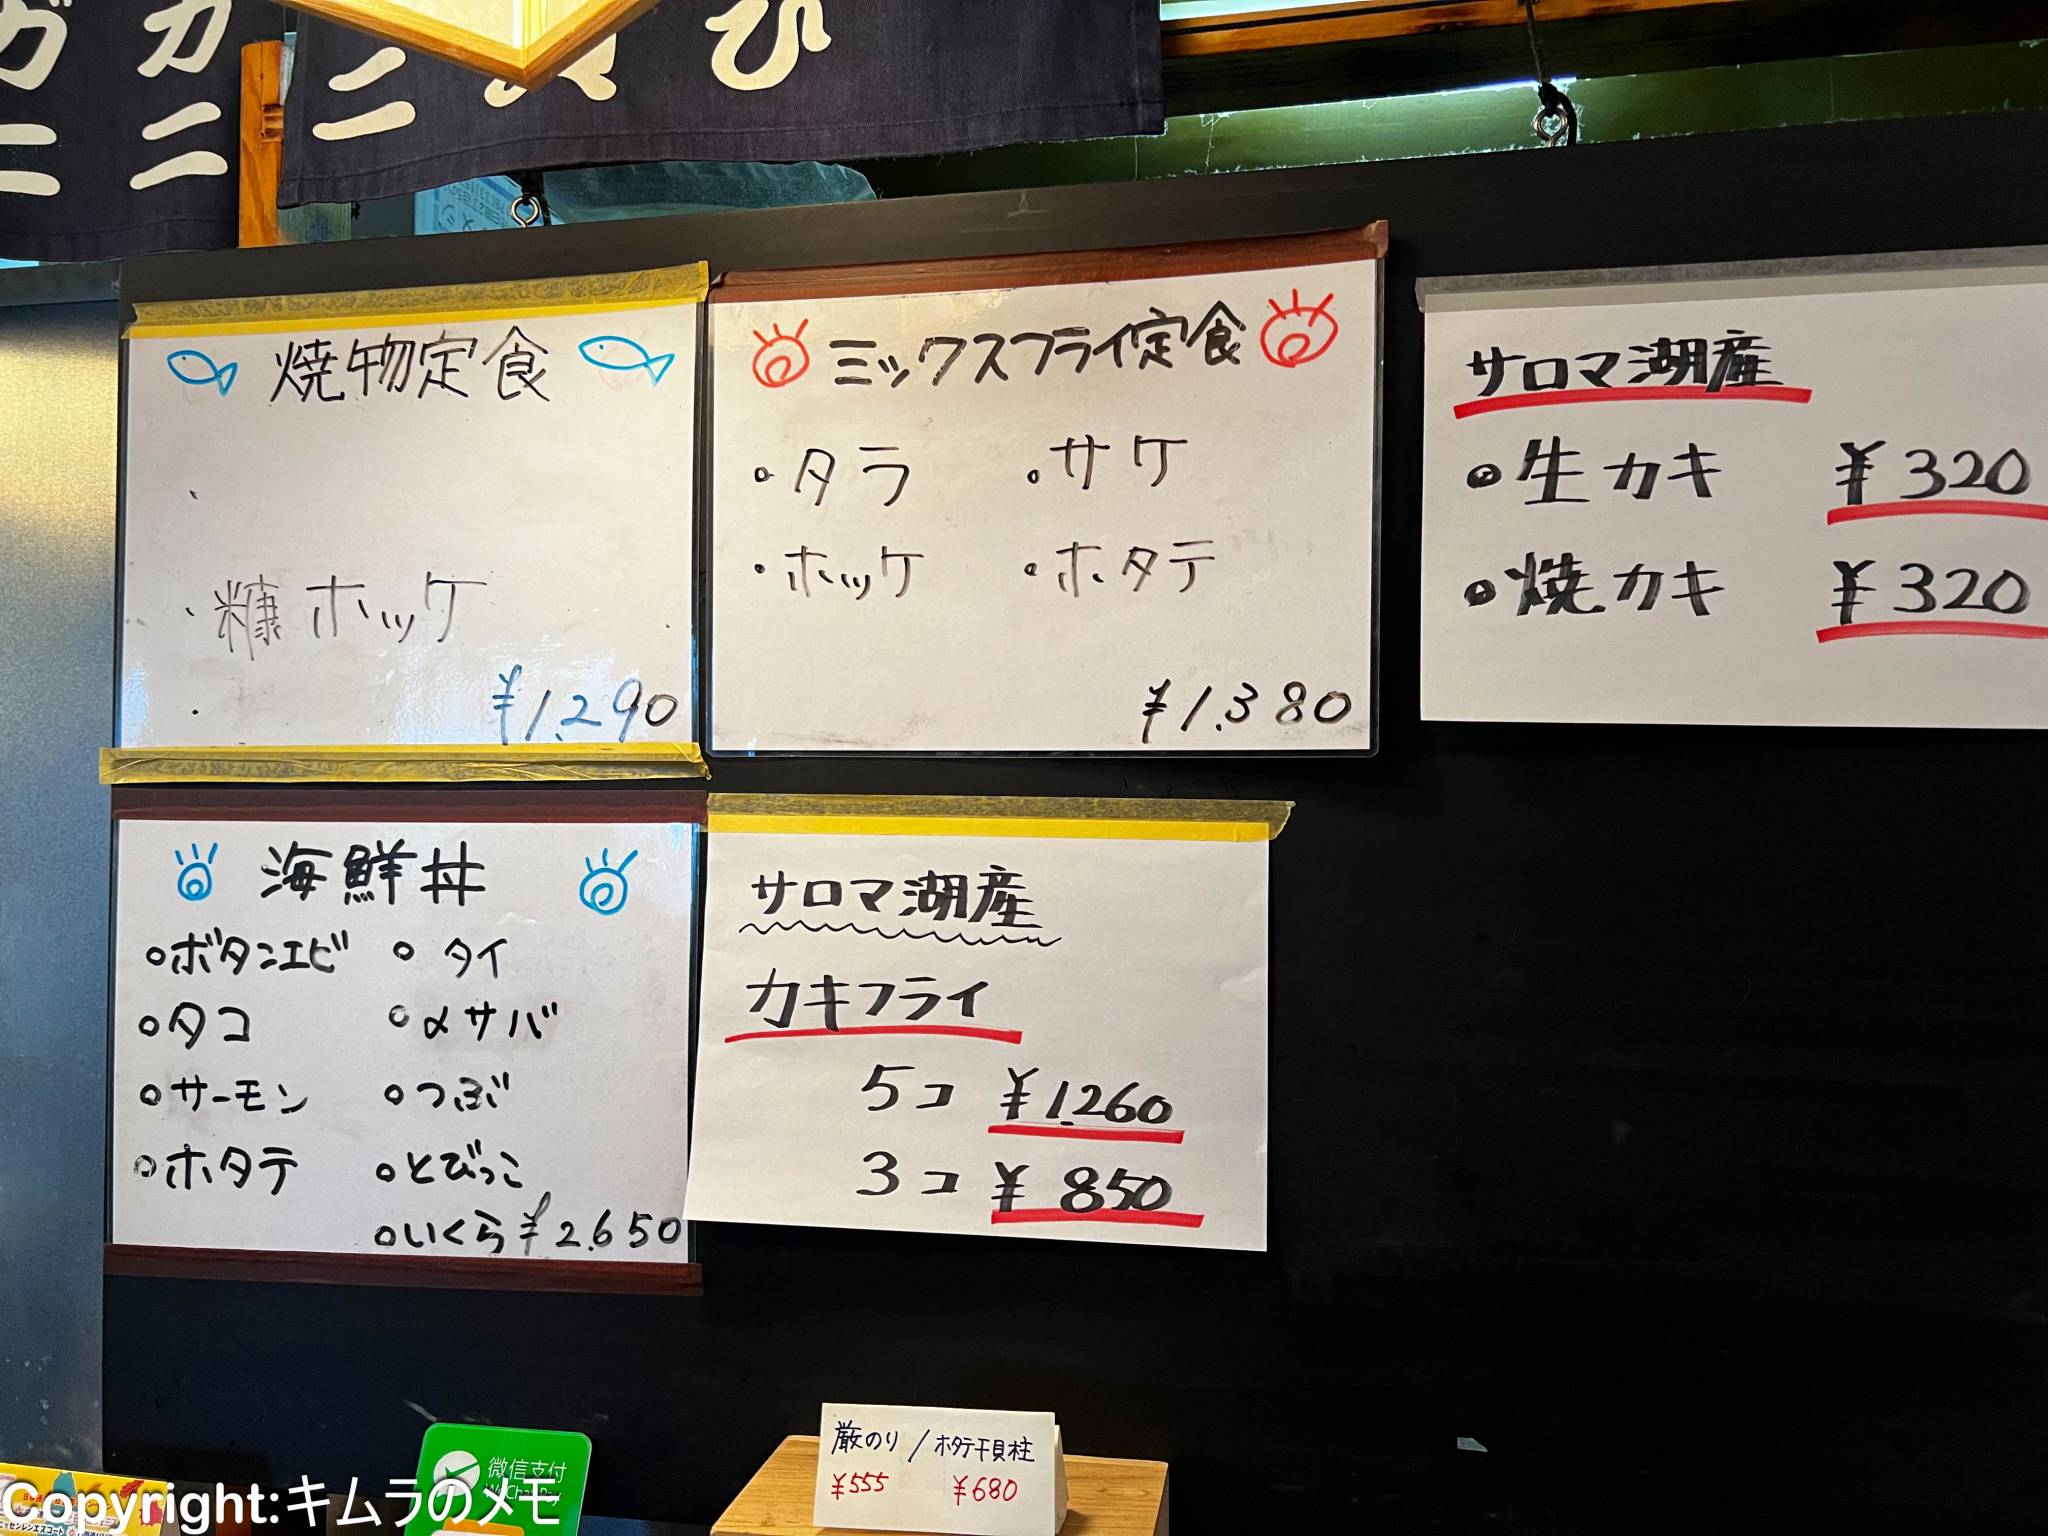 カニ
カニ
ひ
焼物定食
・糠ホッケ
¥1,290
ミックスフライ定食
・タラ ・サケ
・ホッケ ・ホタテ
¥1,380
サロマ湖産
・生カキ ¥320
・焼カキ ¥320
海鮮丼
○ボタンエビ ○タイ
○タコ ○〆サバ
○サーモン ○つぶ
○ホタテ ○とびっこ
○いくら ¥2,650
サロマ湖産
カキフライ
5コ ¥1,260
3コ ¥850
厳のり/ホタテ干貝柱
¥555 ¥680
微信支付
WeChat Pay
Copyright:キムラのメモ